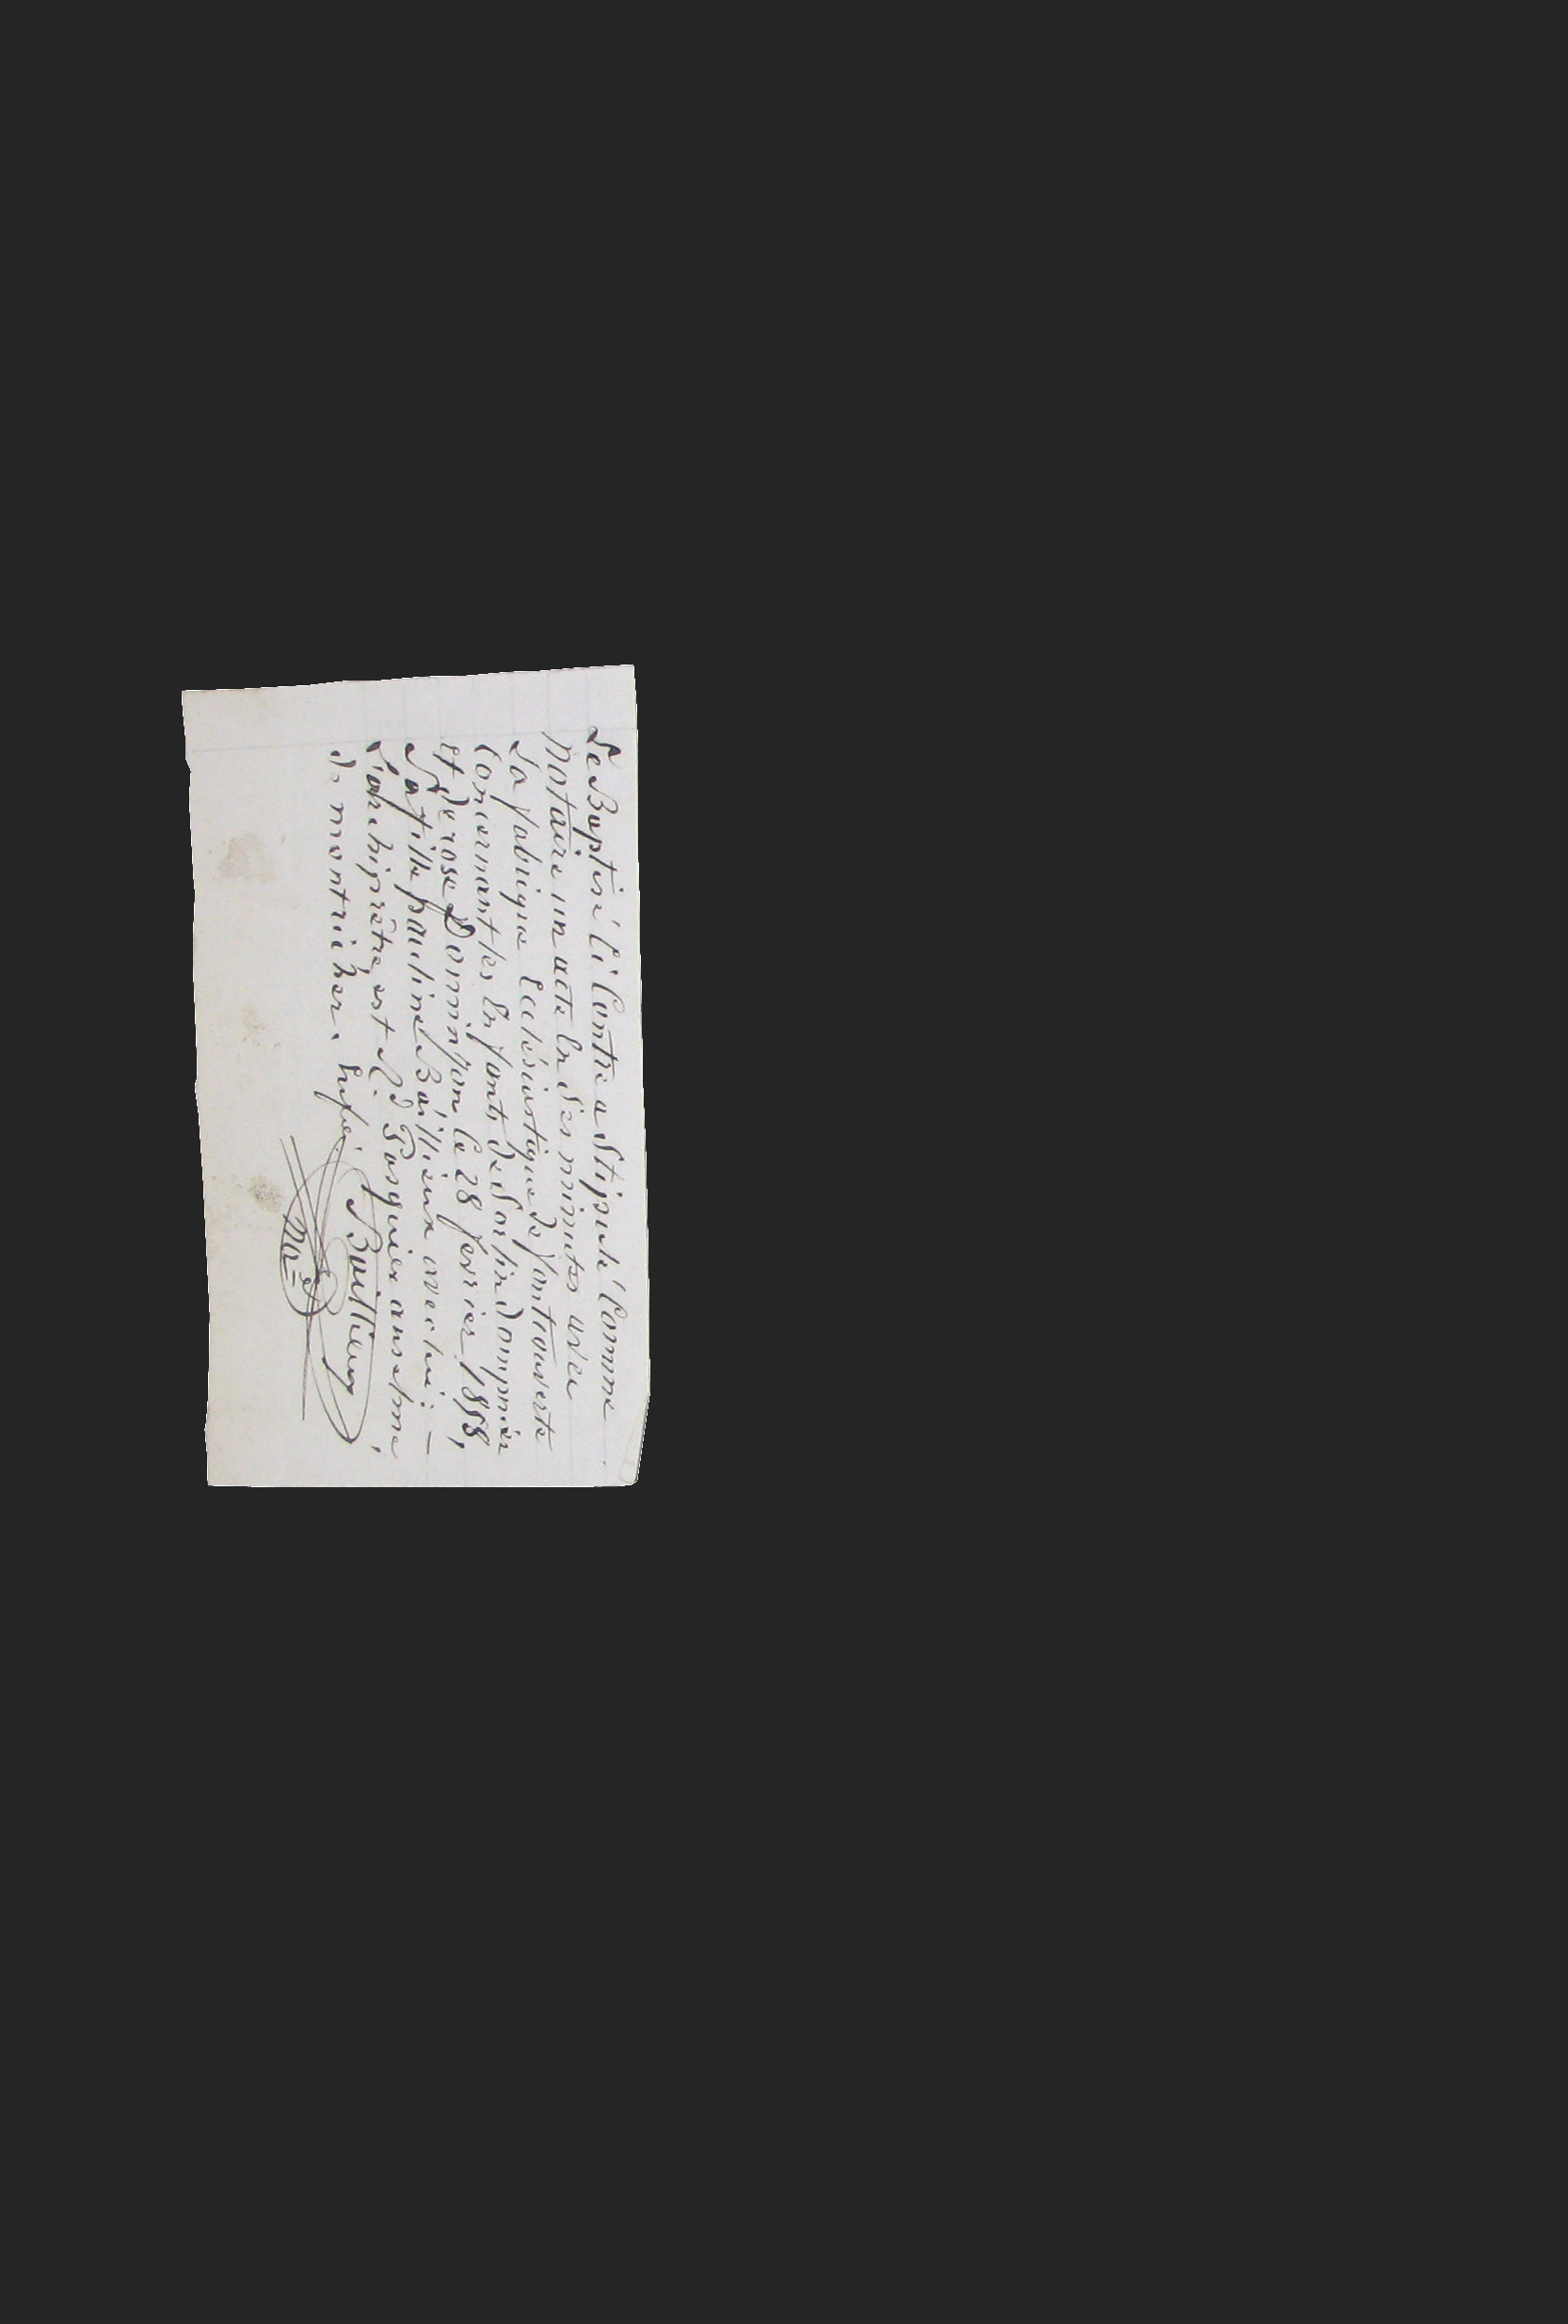 Le Baptisé Ci Contre a Stipulé Comme
Notaire un acte En Ses minutes avec
La fabrique Ecclésiastique de fontcouverte
Concernant les Enfants de Sorlin Dompnier
et de rose Dominjon le 28 fevrier 1858,
Sa fille pauline Baillieux avec lui : —
L'archiprêtre est R.d Pasquier anselme,
de montricher.
Baillieux
No.re